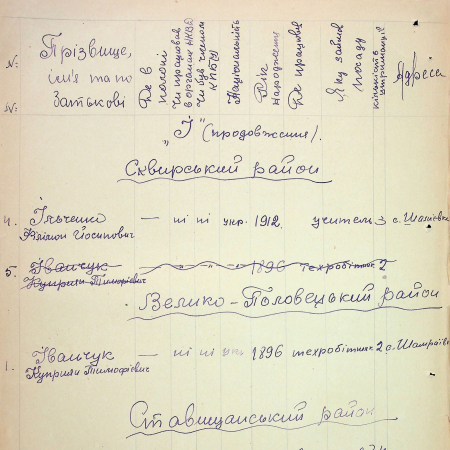 № №
Прізвище, ім'я та по батькові
Де в полоні
Чи працював в органах НКВД
Чи був членом КПБУ
Національність
Рік народження
Де працював
Яку займав посаду
кількість утриманців
Адреса
"І" (продовження).
Сквирський район
4. Ільченко — ні ні укр. 1912. учитель 3 с.
Йосипович
5. Іванчук — " " — 1896 техробітник 2
Куприян Тимофієвич
Велико-Половецький район
1. Іванчук — ні ні укр 1896 техробітник 2 с.
Куприян Тимофієвич
Ставищанський район